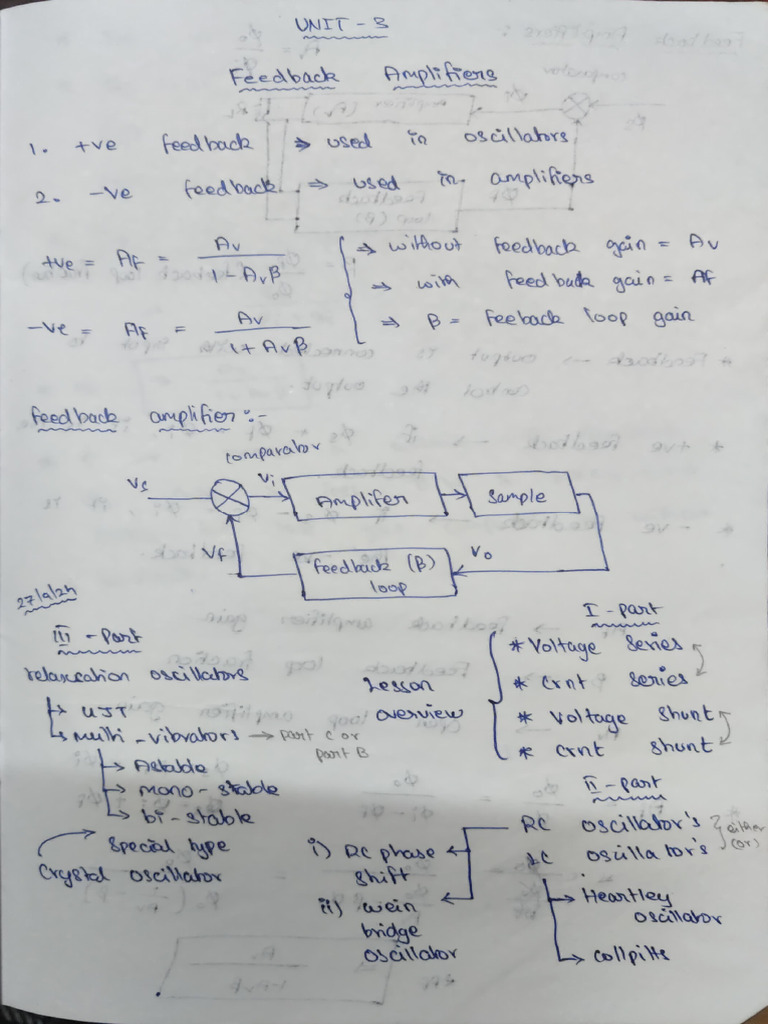 UNIT - 3
Feedback Amplifiers
1. +ve feedback ⇒ used in oscillators
2. -ve feedback ⇒ used in amplifiers
+ve = Af = Av / 1 - Avβ
-ve = Af = Av / 1 + Avβ
⇒ without feedback gain = Av
⇒ with feedback gain = Af
⇒ β = feeback loop gain
feedback amplifier :-
comparator
Vs
Vi
Amplifer
Sample
Vf
feedback (β) loop
Vo
27/9/24
III - part
relaxation oscillators
→ UJT
→ multi - vibrators → part C or part B
→ Astable
→ mono - stable
→ bi - stable
special type
Crystal oscillator
Lesson overview
I - part
* Voltage series
* Crnt series
* Voltage shunt
* Crnt shunt
II - part
RC oscillator's
LC oscillator's
either (or)
i) RC phase shift
ii) wein bridge oscillator
→ Heartley oscillator
→ collpitts